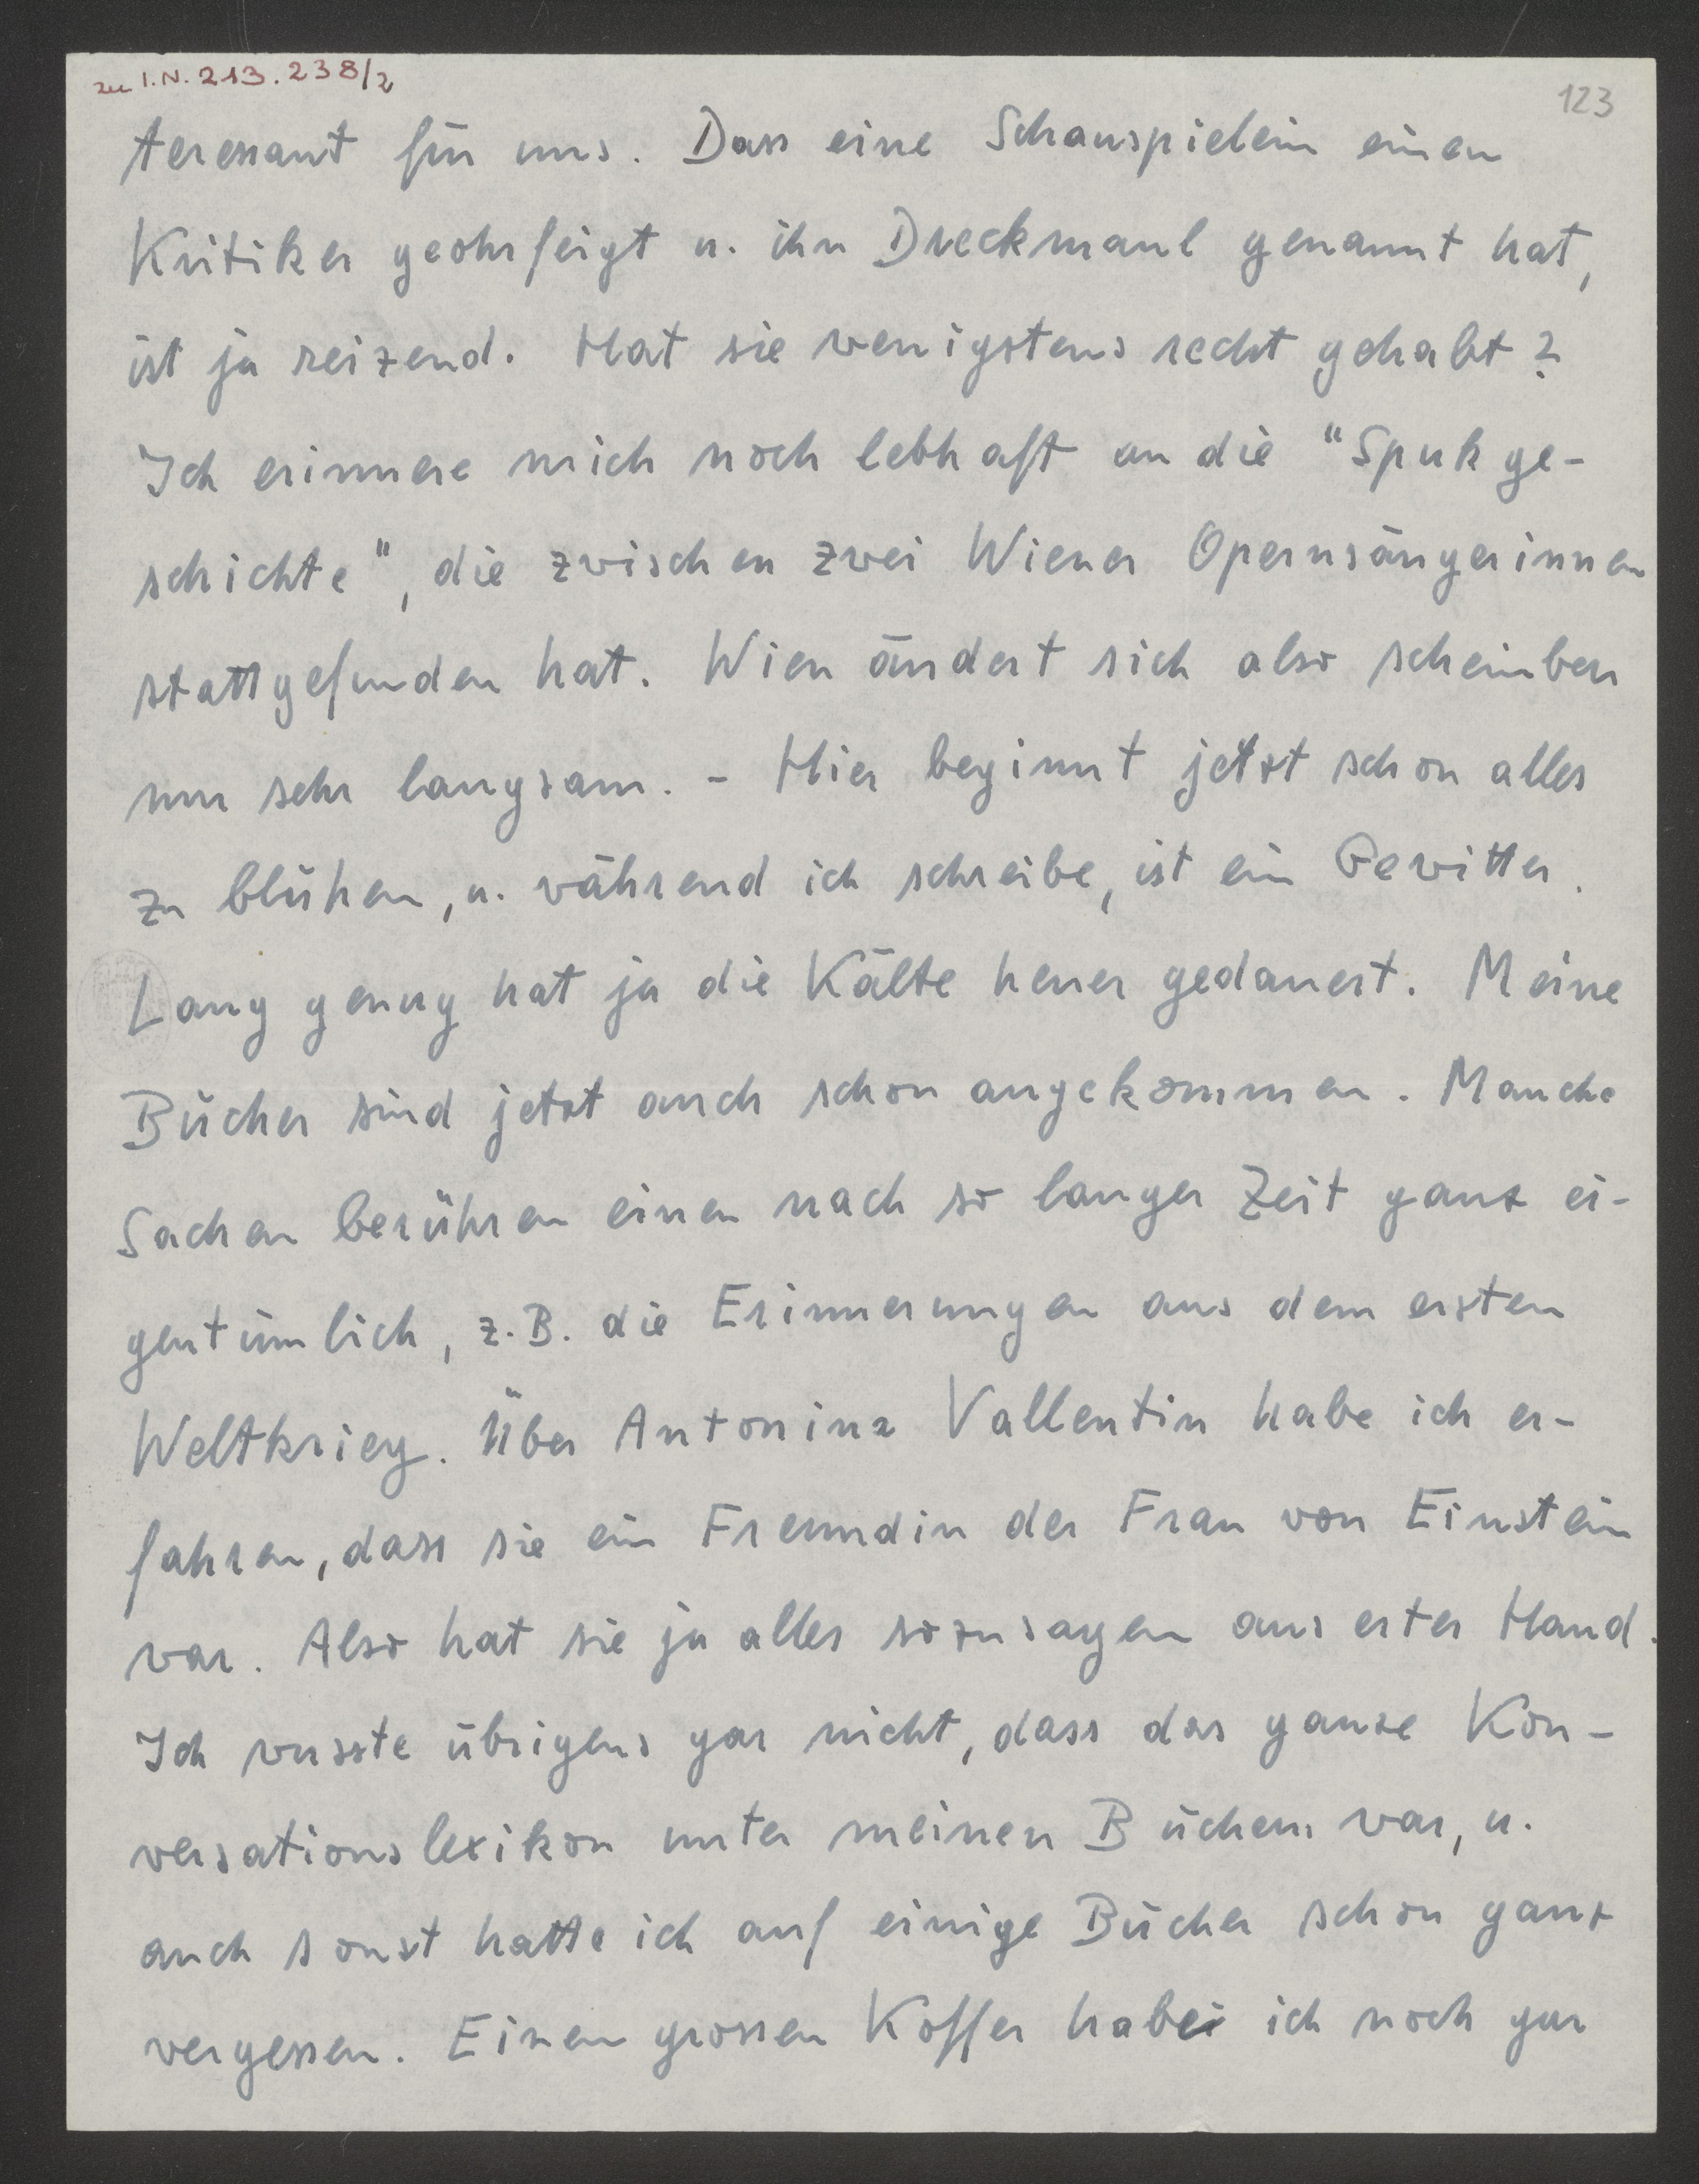 zu I.N. 213.238/2
123
teressant für uns. Dass eine Schauspielein einen
Kritiker geohrfeigt u. ihn Dreckmaul genannt hat,
ist ja reizend. Hat sie wenigstens recht gehabt?
Ich erinnere mich noch lebhaft an die "Spukge-
schichte", die zwischen zwei Wiener Opernsängerinnen
stattgefunden hat. Wien ändert sich also scheinbar
nur sehr langsam. - Hier beginnt jetzt schon alles
zu blühen, u. während ich schreibe, ist ein Gewitter.
Lang genug hat ja die Kälte heuer gedauert. Meine
Bücher sind jetzt auch schon angekommen. Manche
Sachen berühren einen nach so langer Zeit ganz ei-
gentümlich, z.B. die Erinnerungen aus dem ersten
Weltkrieg. Über Antonina Vallentin habe ich er-
fahren, dass sie ein Freundin der Frau von Einstein
war. Also hat sie ja alles sozusagen aus erter Hand.
Ich wusste übrigens gar nicht, dass das ganze Kon-
versationslexikon unter meinen Büchern war, u.
auch sonst hatte ich auf einige Bücher schon ganz
vergessen. Einen grossen Koffer habe ich noch gar